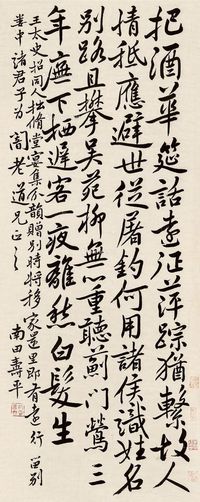 把酒華筵話遠征萍踪猶繫故人
情祗應避世從屠釣何用諸侯識姓名
別路且攀吳苑柳無心重聽薊門鶯三
年廡下栖遲客一夜離愁白髮生
王太史招同人拙脩堂宴集分韻贈別時將移家里即有遠行留別
婁中諸君子為 闇老道兄正之 南田壽平